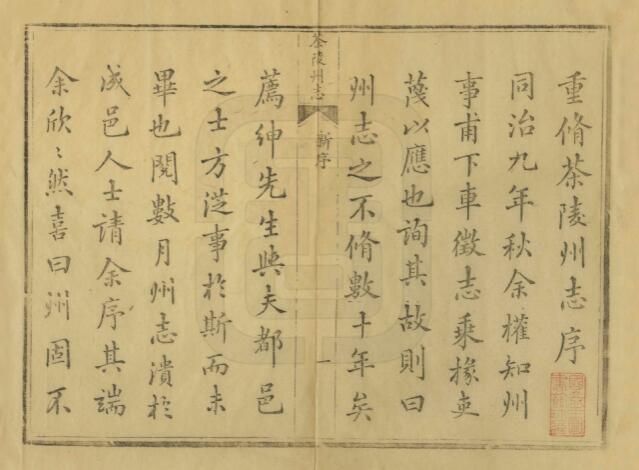 重脩茶陵州志序
同治九年秋余權知州
事甫下車徵志乘掾吏
蔑以應也詢其故則曰
州志之不脩數十年矣
茶陵州志
新序
一
薦紳先生與夫都邑
之士方從事於斯而未
畢也閱數月州志潰於
成邑人士請余序其端
余欣〻然喜曰州固不